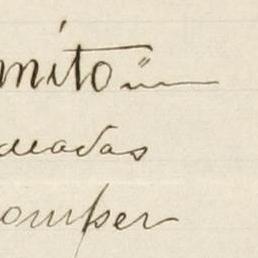 mito "
eadas
omper